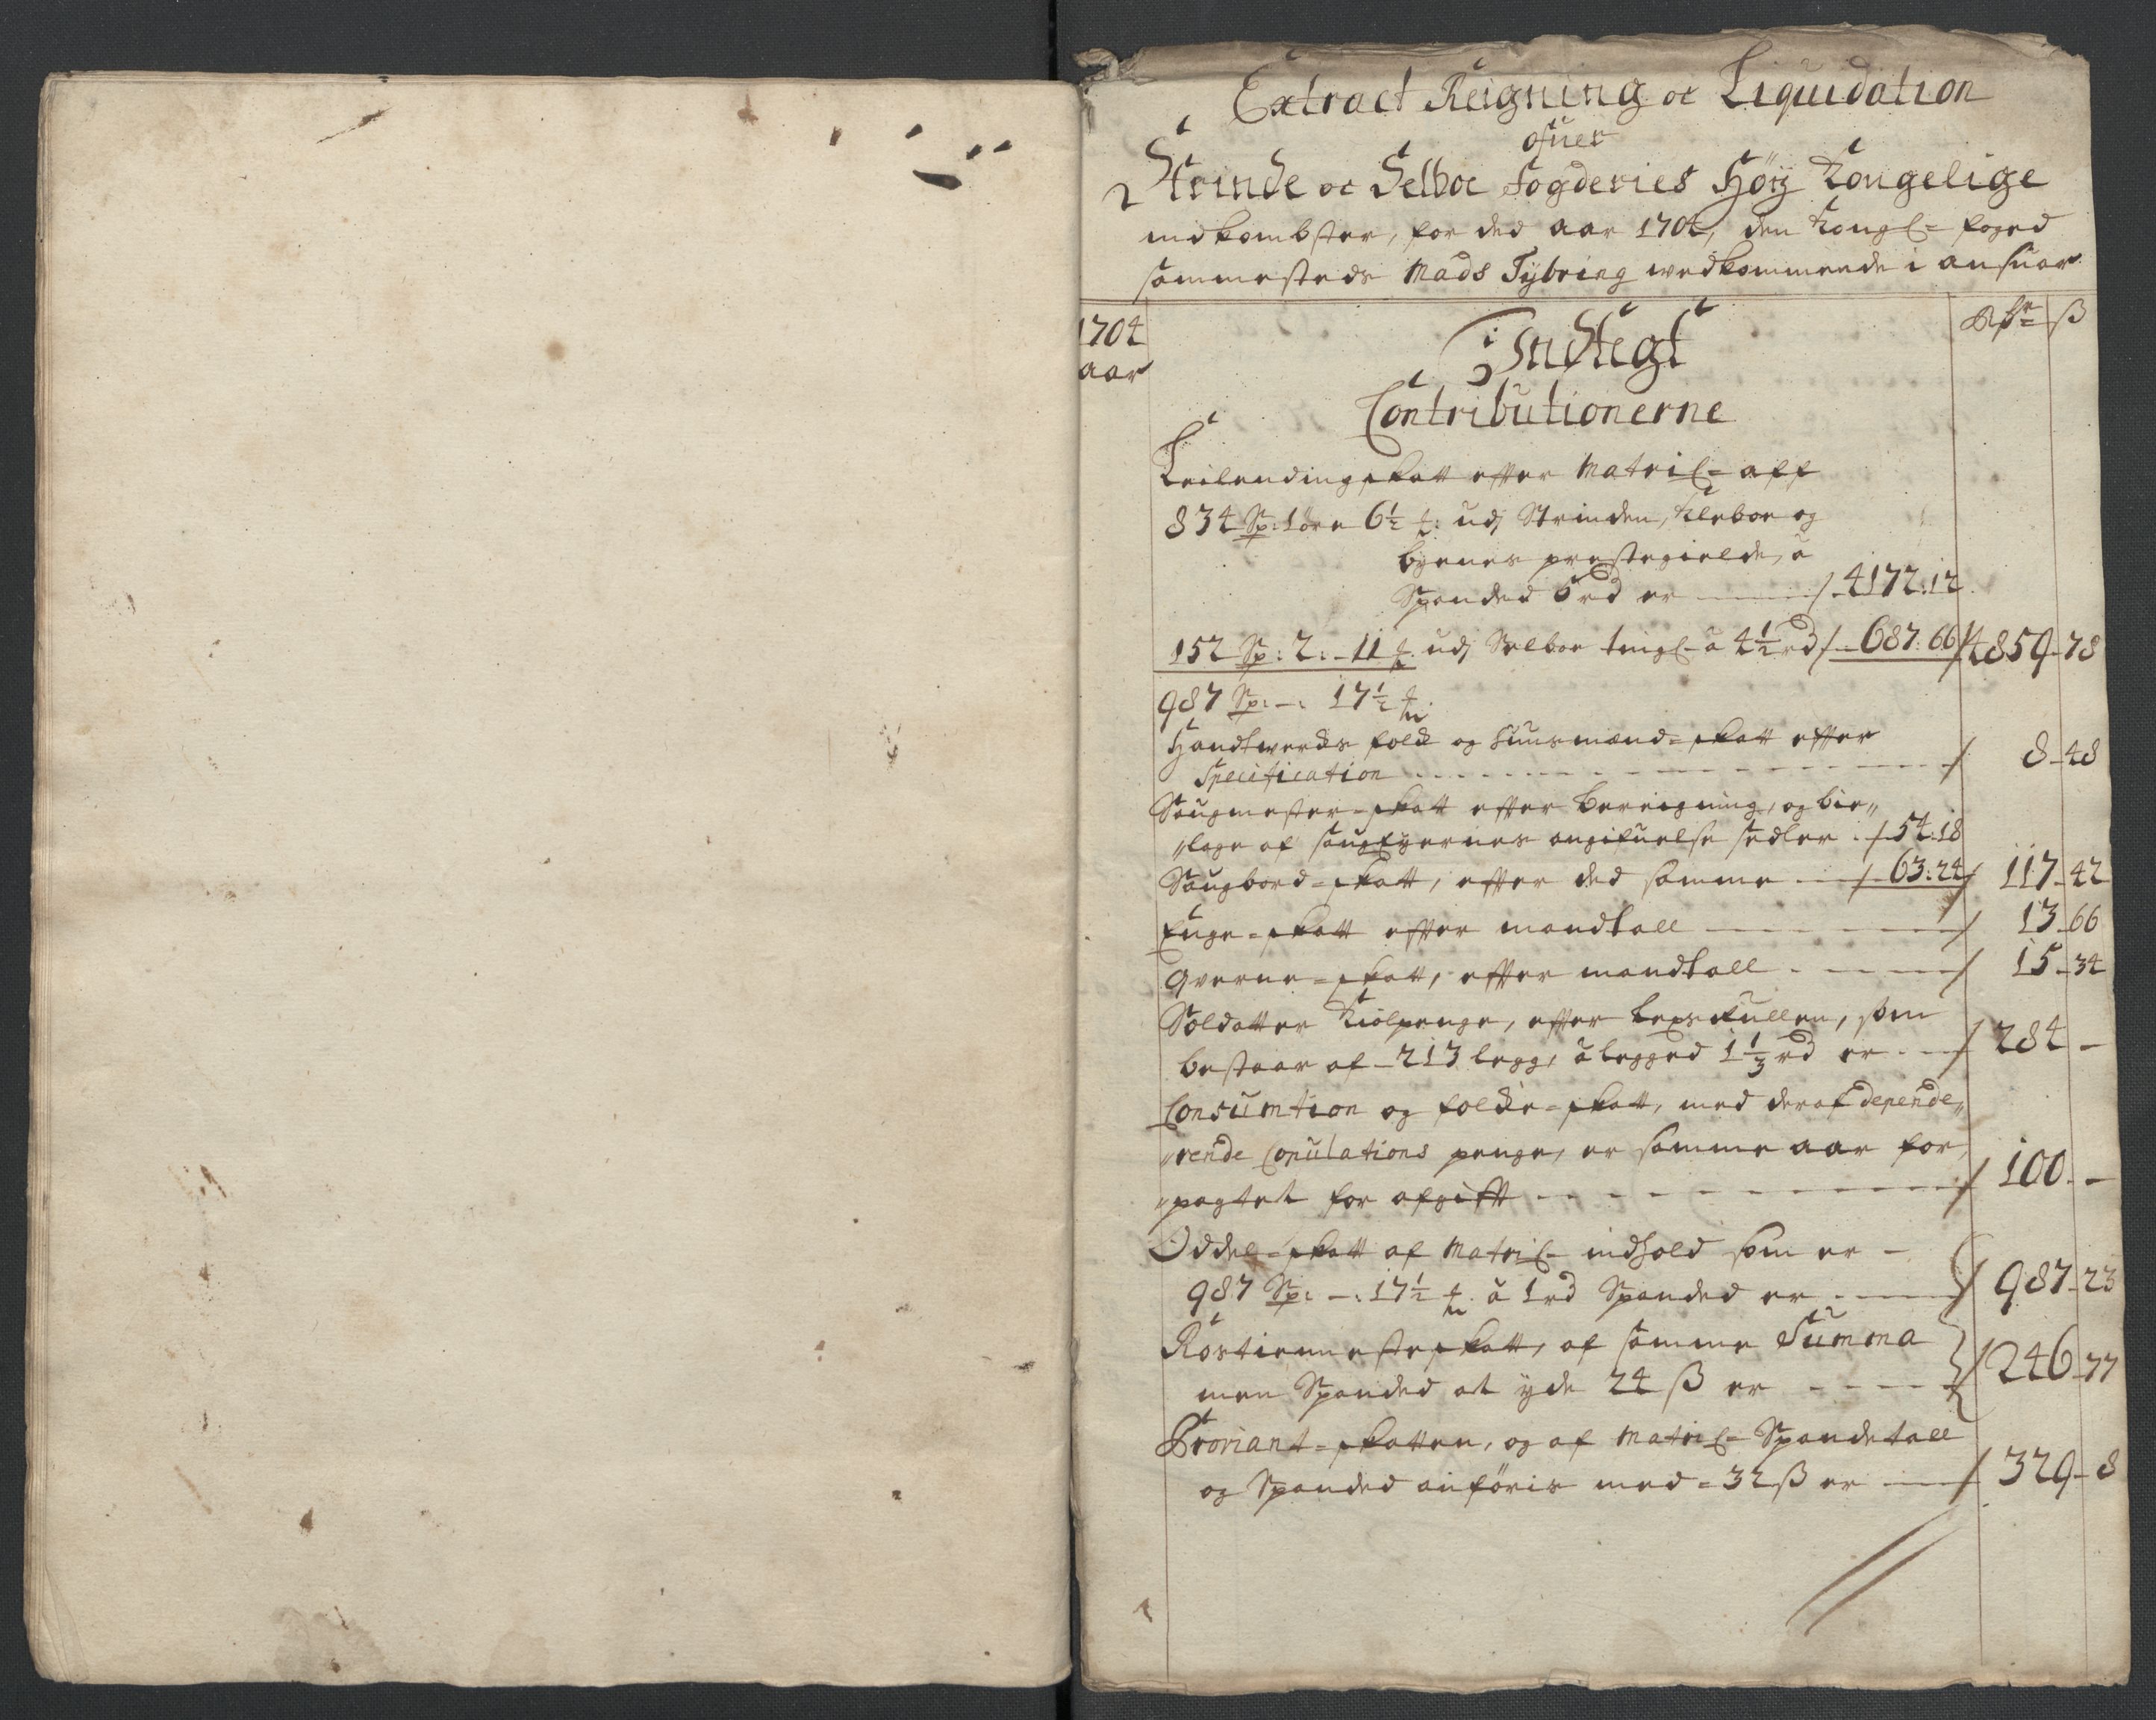 Extract Reigning oc Liquidation
ofuer
Strinde oc Selboe Fogderies Höÿ Kongelige
indkombster, for ded aar 1704, den Kongl= foged
sammesteds Mads Tybring wedkommende i ansuar
1704
aar
Rdr ß
Indtegt
Contributionerne
Leilendingskatt efter Matricl= aff
834 Sp: 1 øre 6½ udj Strinden, Klæboe og
byenes prestegield, â
Spanded 5 rd er / 4172:12
152 Sp: 2:- 11 udj Selboe tingl- â 4½ rd / 687:66 / 4859-78
987 Sp: -: 17½
Handtwercks folck og huusmænd=skatt efter
Specification / 8-48
Saugmester=skatt efter bereigning, og bie„
„lage af saugeyernes angifuelse sedler / 54:18
Saugbord=skatt, efter ded samme / 63:24 / 117-42
Enge=skatt efter mandtall / 13-66
Qverne=skatt, efter mandtall / 15-34
Soldatter Kiolpenge, efter legs rullen, som
bestaar af - 213 legg, â legged 1⅓ rd er / 284 -
Consumtion og folcke=skatt, med deraf depende„
„rende Copulations penge, er samme aar for
„pagtet for afgift / 100 -
Oddel=skatt af Matricl- indhold som er -
987 Sp: -: 17½ â 1 rd Spanded er / 987-23
Rostienneste skatt, af samme Summa
men Spanded at yde 24 ß er / 246-77
Proviant=skatten, og af Matricl- Spandetall
og Spanded anföris med = 32 ß er / 329-8